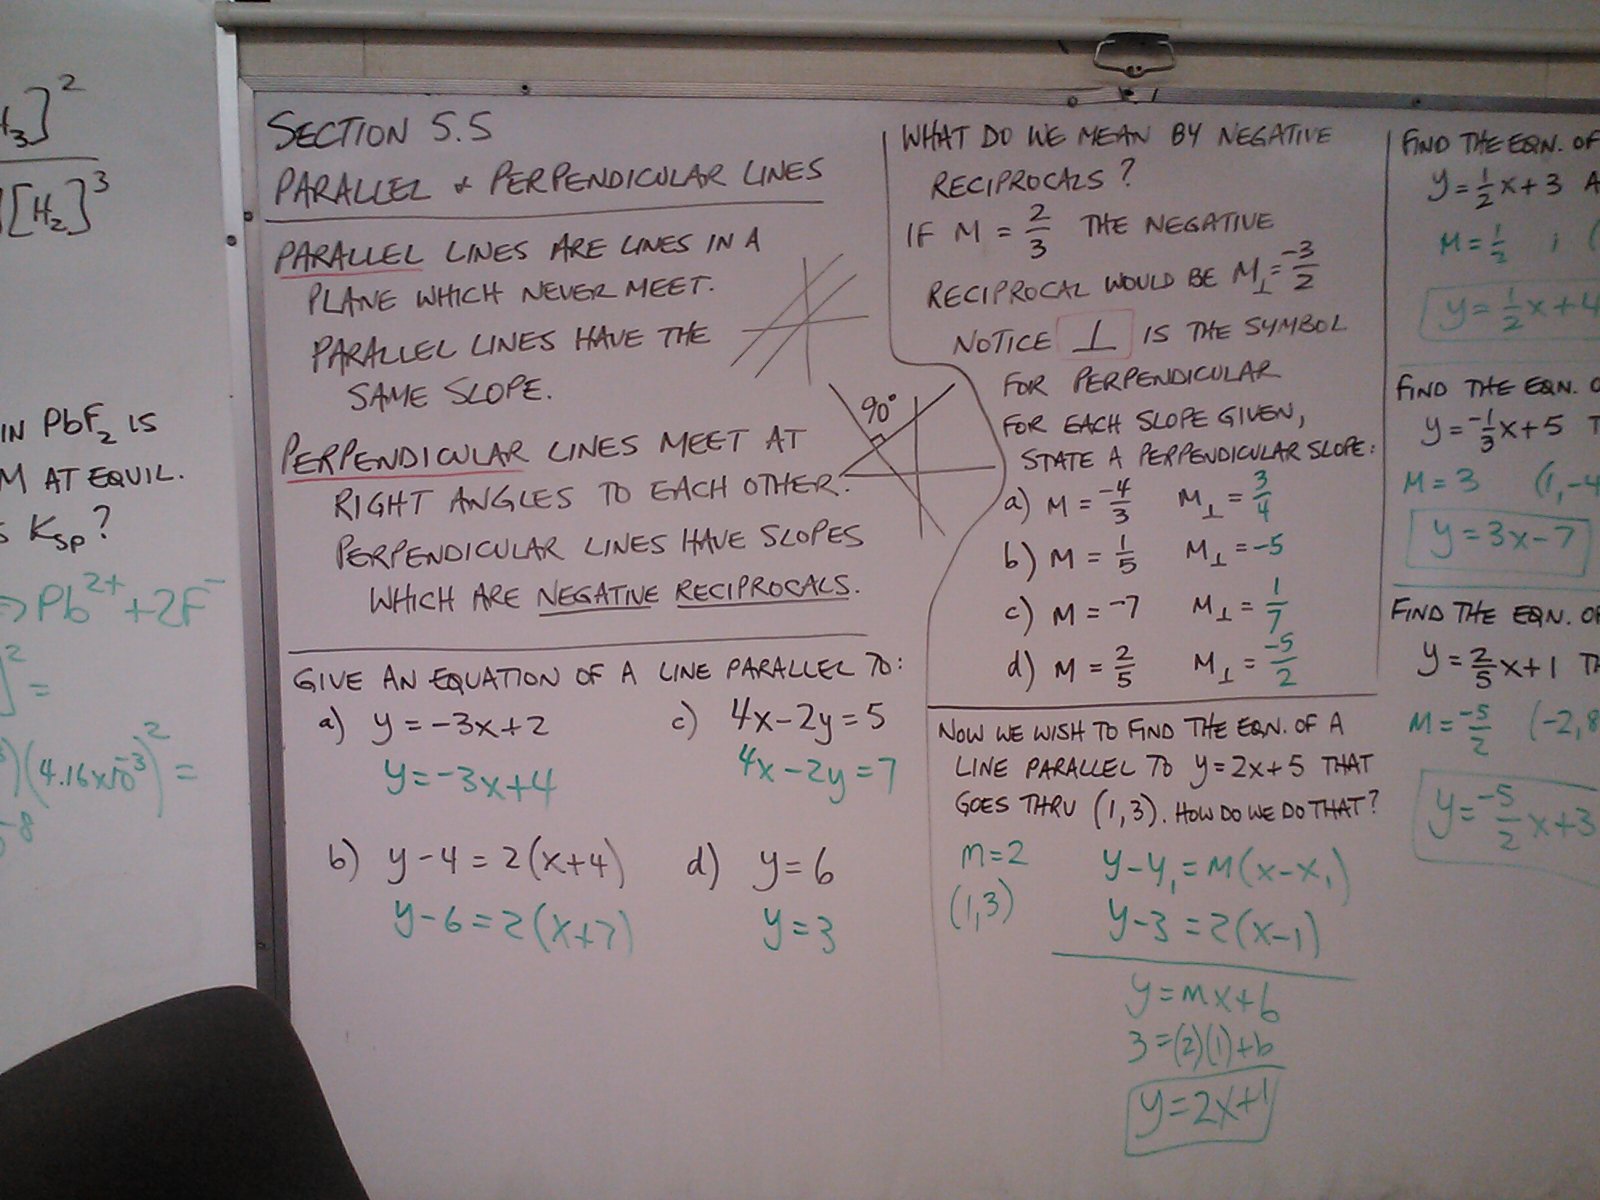 H₃]²
[H₂]³
IN PbF₂ IS
M AT EQUIL.
Ksp?
Pb²⁺ + 2F⁻
]² =
)(4.16x10⁻³)² =
⁻⁸
SECTION 5.5
PARALLEL & PERPENDICULAR LINES
PARALLEL LINES ARE LINES IN A
PLANE WHICH NEVER MEET.
PARALLEL LINES HAVE THE
SAME SLOPE.
90°
PERPENDICULAR LINES MEET AT
RIGHT ANGLES TO EACH OTHER.
PERPENDICULAR LINES HAVE SLOPES
WHICH ARE NEGATIVE RECIPROCALS.
GIVE AN EQUATION OF A LINE PARALLEL TO:
a) y = -3x+2
y = -3x+4
b) y-4 = 2(x+4)
y-6 = 2(x+7)
c) 4x-2y = 5
4x-2y = 7
d) y = 6
y = 3
WHAT DO WE MEAN BY NEGATIVE
RECIPROCALS?
IF M = 2/3 THE NEGATIVE
RECIPROCAL WOULD BE M⊥ = -3/2
NOTICE ⊥ IS THE SYMBOL
FOR PERPENDICULAR
FOR EACH SLOPE GIVEN,
STATE A PERPENDICULAR SLOPE:
a) M = -4/3 M⊥ = 3/4
b) M = 1/5 M⊥ = -5
c) M = -7 M⊥ = 1/7
d) M = 2/5 M⊥ = -5/2
NOW WE WISH TO FIND THE EQN. OF A
LINE PARALLEL TO y = 2x+5 THAT
GOES THRU (1,3). HOW DO WE DO THAT?
m = 2
(1,3)
y-y₁ = M(x-x₁)
y-3 = 2(x-1)
y = mx+b
3 = (2)(1)+b
y = 2x+1
FIND THE EQN. OF
y = 1/2x+3
M = 1/2 ; (
y = 1/2x+4
FIND THE EQN. O
y = -1/3x+5
M = 3 (1,-4
y = 3x-7
FIND THE EQN. OF
y = 2/5x+1
M = -5/2 (-2,8
y = -5/2x+3